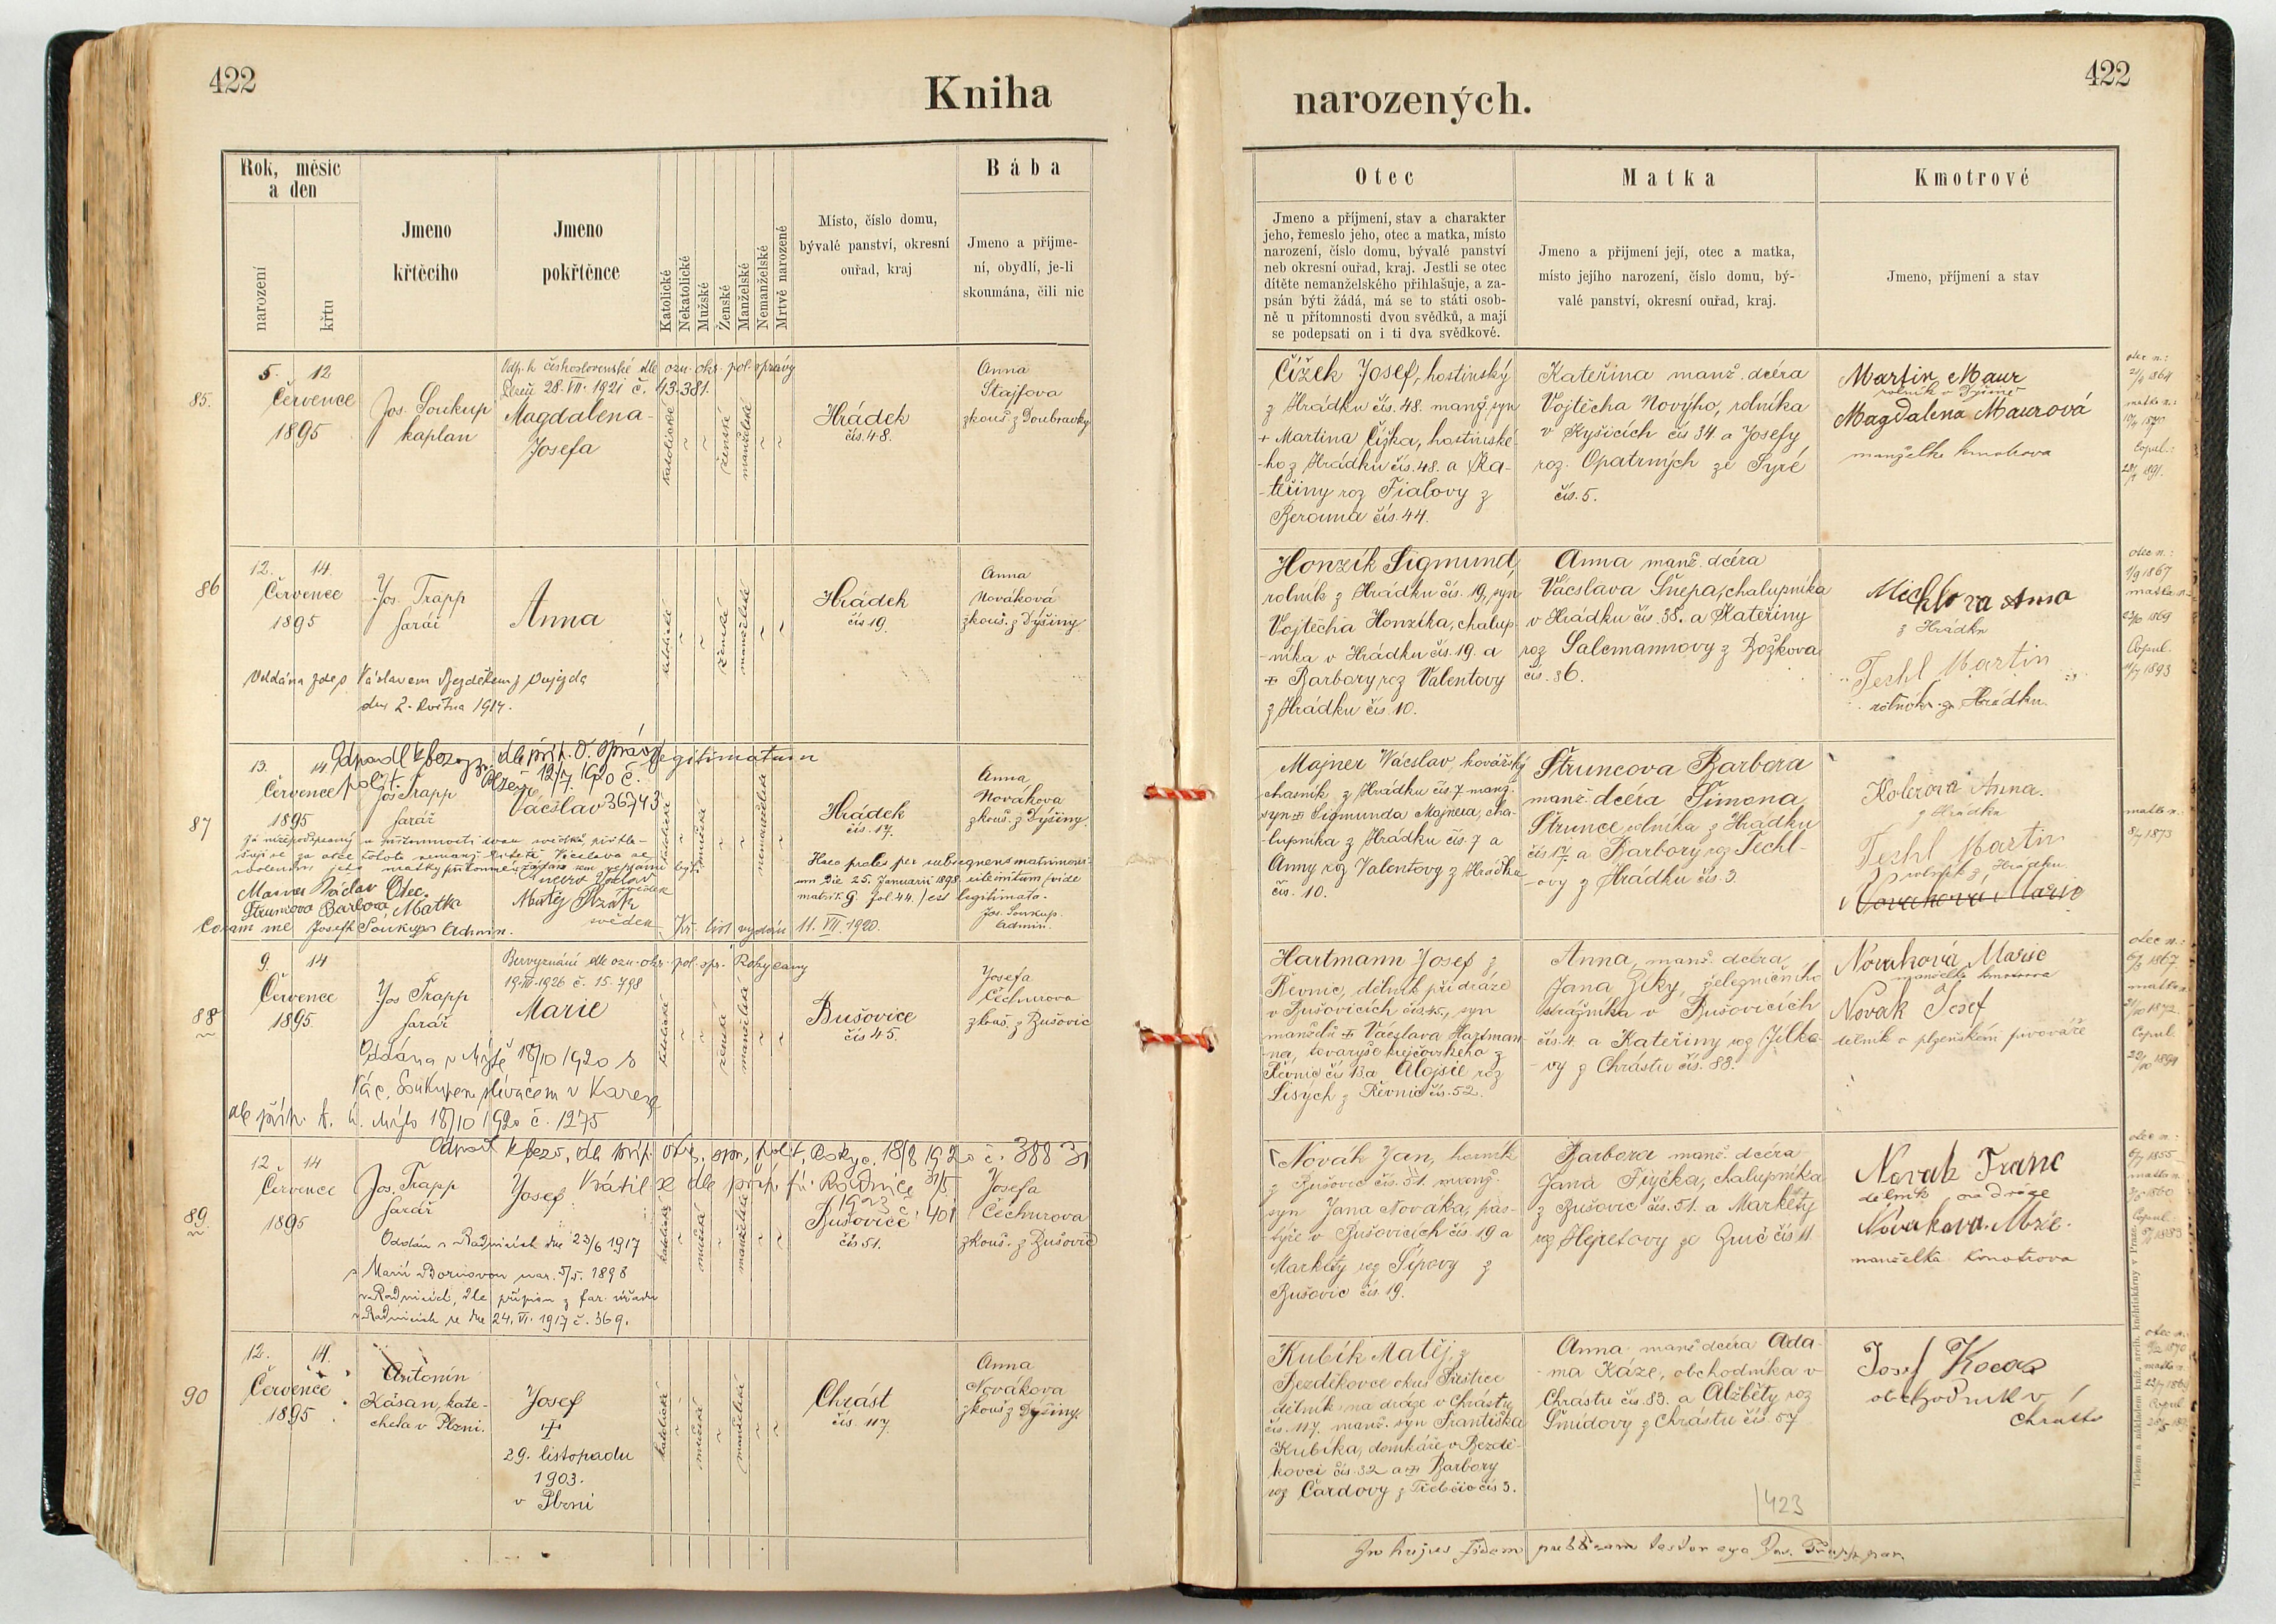 422
Kniha
narozených.
422
Rok, měsíc
a den
narození
křtu
Jmeno
křtěcího
Jmeno
pokřtěnce
Katolické
Nekatolické
Mužské
Ženské
Manželské
Nemanželské
Mrtvě narozené
Místo, číslo domu,
bývalé panství, okresní
ouřad, kraj
Bába
Jmeno a příjme-
ní, obydlí, je-li
skoumána, čili nic
Otec
Jmeno a příjmení, stav a charakter
jeho, řemeslo jeho, otec a matka, místo
narození, číslo domu, bývalé panství
neb okresní ouřad, kraj. Jestli se otec
dítěte nemanželského přihlašuje, a za-
psán býti žádá, má se to státi osob-
ně u přítomnosti dvou svědků, a mají
se podepsati on i ti dva svědkové.
Matka
Jmeno a přijmení její, otec a matka,
místo jejího narození, číslo domu, bý-
valé panství, okresní ouřad, kraj.
Kmotrové
Jmeno, příjmení a stav
85.
5. 12
Července
1895
Jos. Soukup
kaplan
Odp. k československé dle ozn. okr. pol. správy
Plzeň 28.VII.1921 č. 43.381.
Magdalena-
Josefa
katolické
ženské
manželské
Hrádek
čís. 48.
Anna
Stajfova
zkouš. z Doubravky
Čížek Josef, hostinský
z Hrádku čís. 48. manž. syn
+ Martina Čížka, hostinské-
-ho z Hrádku čís. 48. a Ka-
-teřiny roz Fialovy z
Berouna čís. 44.
Kateřina manž. dcéra
Vojtěcha Novýho, rolníka
v Kyšicích čís 34. a Josefy
roz. Opatrných ze Syré
čís. 5.
Martin Maur
rolník v Dýšině
Magdalena Maurová
manželka kmotrova
otec n.:
1864
matka n.:
Copul.:
1891.
86
12. 14.
Července
1895
Jos. Trapp
farář
Anna
katolické
ženské
manželské
Hrádek
čís 19.
Anna
Nováková
zkouš. z Dýšiny.
Oddána zde s Václavem Bezděkem z Dujezda
dne 2. května 1914.
Honzík Sigmund
rolník z Hrádku čís. 19, syn
Vojtěcha Honzíka, chalup-
-níka v Hrádku čís. 19. a
Barbory roz Valentovy
z Hrádku čís. 10.
Anna manž. dcéra
Václava Šnepa, chalupníka
v Hrádku čís. 38. a Kateřiny
roz Salcmannovy z Božkova
čís. 86.
Michlova Anna
z Hrádku
Teshl Martin
rolník z Hrádku
otec n.:
1/9 1867
matka n.
1869
Copul.
1893
87
13. 14
Července
1895
Odpadl k bezvyz. dle příp. o. správy
polit. Plzeň 12/7. 1920 č.
36743
legitimatum
Jos. Trapp
farář
Václav
katolické
mužské
nemanželské
Hrádek
čís. 17.
Anna
Novákova
zkouš. z Dýšiny.
Já nížepodepsaný u přítomnosti dvou svědků, přihla-
šuji se za otce tohoto nemanž. dítěte Václava se
svolením jeho matky přítomné a žádám za zapsání býti
Majner Václav Otec.
Štruncova Barbora Matka
svědek
Matěj
svědek
Coram me Josefh Soukup Admin.
Kř. list vydán 11. VII. 1920.
Haec proles per subsequens matrimoni-
um die 25. Januarii 1898 rite initum (vide
matrik. G. fol. 44.) est legitimata.
Jos. Soukup.
admin.
Majner Václav kovářský
chasník z Hrádku čís. 7 manž.
syn Sigmunda Majnera, cha-
-lupníka z Hrádku čís. 7 a
Anny roz Valentovy z Hrádku
čís. 10.
Štruncova Barbora
manž. dcéra Šimona
Strunce rolníka z Hrádku
čís 17. a Barbory roz Techl-
-ovy z Hrádku čís. 3.
Kolerová Anna.
z Hrádku
Teshl Martin
rolník z Hrádku.
Nováková Marie
matka n.
1873
88
9. 14
Července
1895.
Jos Trapp
farář
Bezvyznání dle ozn. okr. pol. spr. Rokycany
1926 č. 15.798
Marie
katolické
ženské
manželské
Bušovice
čís 45.
Josefa
Čechurova
zkouš. z Bušovic
Oddána v Mýtě 18/10 1920 s
Vác. Soukupem slévačem v Karez
dle příp. f. ú. Mýto 18/10 1920 č. 1275
Hartmann Josef z
Řevnic, dělník při dráze
v Bušovicích čís. 45., syn
manželů Václava Hartman-
na, tovaryše krejčovského z
Řevnic čís 13 a Aloisie roz
Lisých z Řevnic čís. 52.
Anna, manž. dcéra
Jana Ziky, železničního
strážníka v Bušovicích
čís. 4. a Kateřiny roz Jílko-
-vy z Chrástu čís. 88.
Nováková Marie
manželka kmotrova
Novák Josef
dělník v plzeňském pivováře
otec n.:
1867
matka n.
1872
Copul.
1894
89.
12 14
Července
1895
Odpadl k bezv. dle příp. okr. spr. polit. Rokyc. 18/8 1920 č. 38831
Vrátil se dle příp. f. ú. Radnice 31/5
1923 č. 401
Jos. Trapp
farář
Josef
katolické
mužské
manželské
Bušovice
čís 51.
Josefa
Čechurova
zkouš. z Bušovic
Oddán v Radnicích dne 23/6 1917
s Marií Borisovou nar. 5/5. 1898
v Radnicích, dle přípisu z far. úřadu
v Radnicích ze dne 24. VI. 1917 č. 369.
Novák Jan, horník
z Bušovic čís. 51. manž.
syn Jana Nováka, pas-
týře v Bušovicích čís. 19 a
Markéty roz Šípovy z
Bušovic čís. 19.
Barbora manž. dcéra
Jana Fryčka, chalupníka
z Bušovic čís. 51. a Markéty
roz Hejretovy ze Zvíč čís 11.
Novák Franc
dělník na dráze
Novakova Marie.
manželka kmotrova
otec n.:
1855
matka n.
1860
Copul.
1883
90
12. 14.
Července
1895
Antonín
Kášan, kate-
cheta v Plzni.
Josef
29. listopadu
1903.
v Plzni
katolické
mužské
manželské
Chrást
čís. 117.
Anna
Novákova
zkouš z Dýšiny.
Kubík Matěj, z
Bezděkovce okres Přeštice
dělník na dráze v Chrástu
čís. 117. manž. syn Františka
Kubíka, domkáře v Bezdě-
kovci čís. 32 a Barbory
roz Čardovy z čís 3.
Anna manž dcéra Ada-
-ma Káze, obchodníka v
Chrástu čís. 83. a Alžběty roz
Šmídovy z Chrástu čís. 57.
Josef Kocar
obchodník v
Chrástu
otec n.
1870
matka n.
Copul
423
In hujus fidem publicam testor ego Jos. Trapp par.
Tiskem a nákladem kníž. arcib. knihtiskárny v Praze